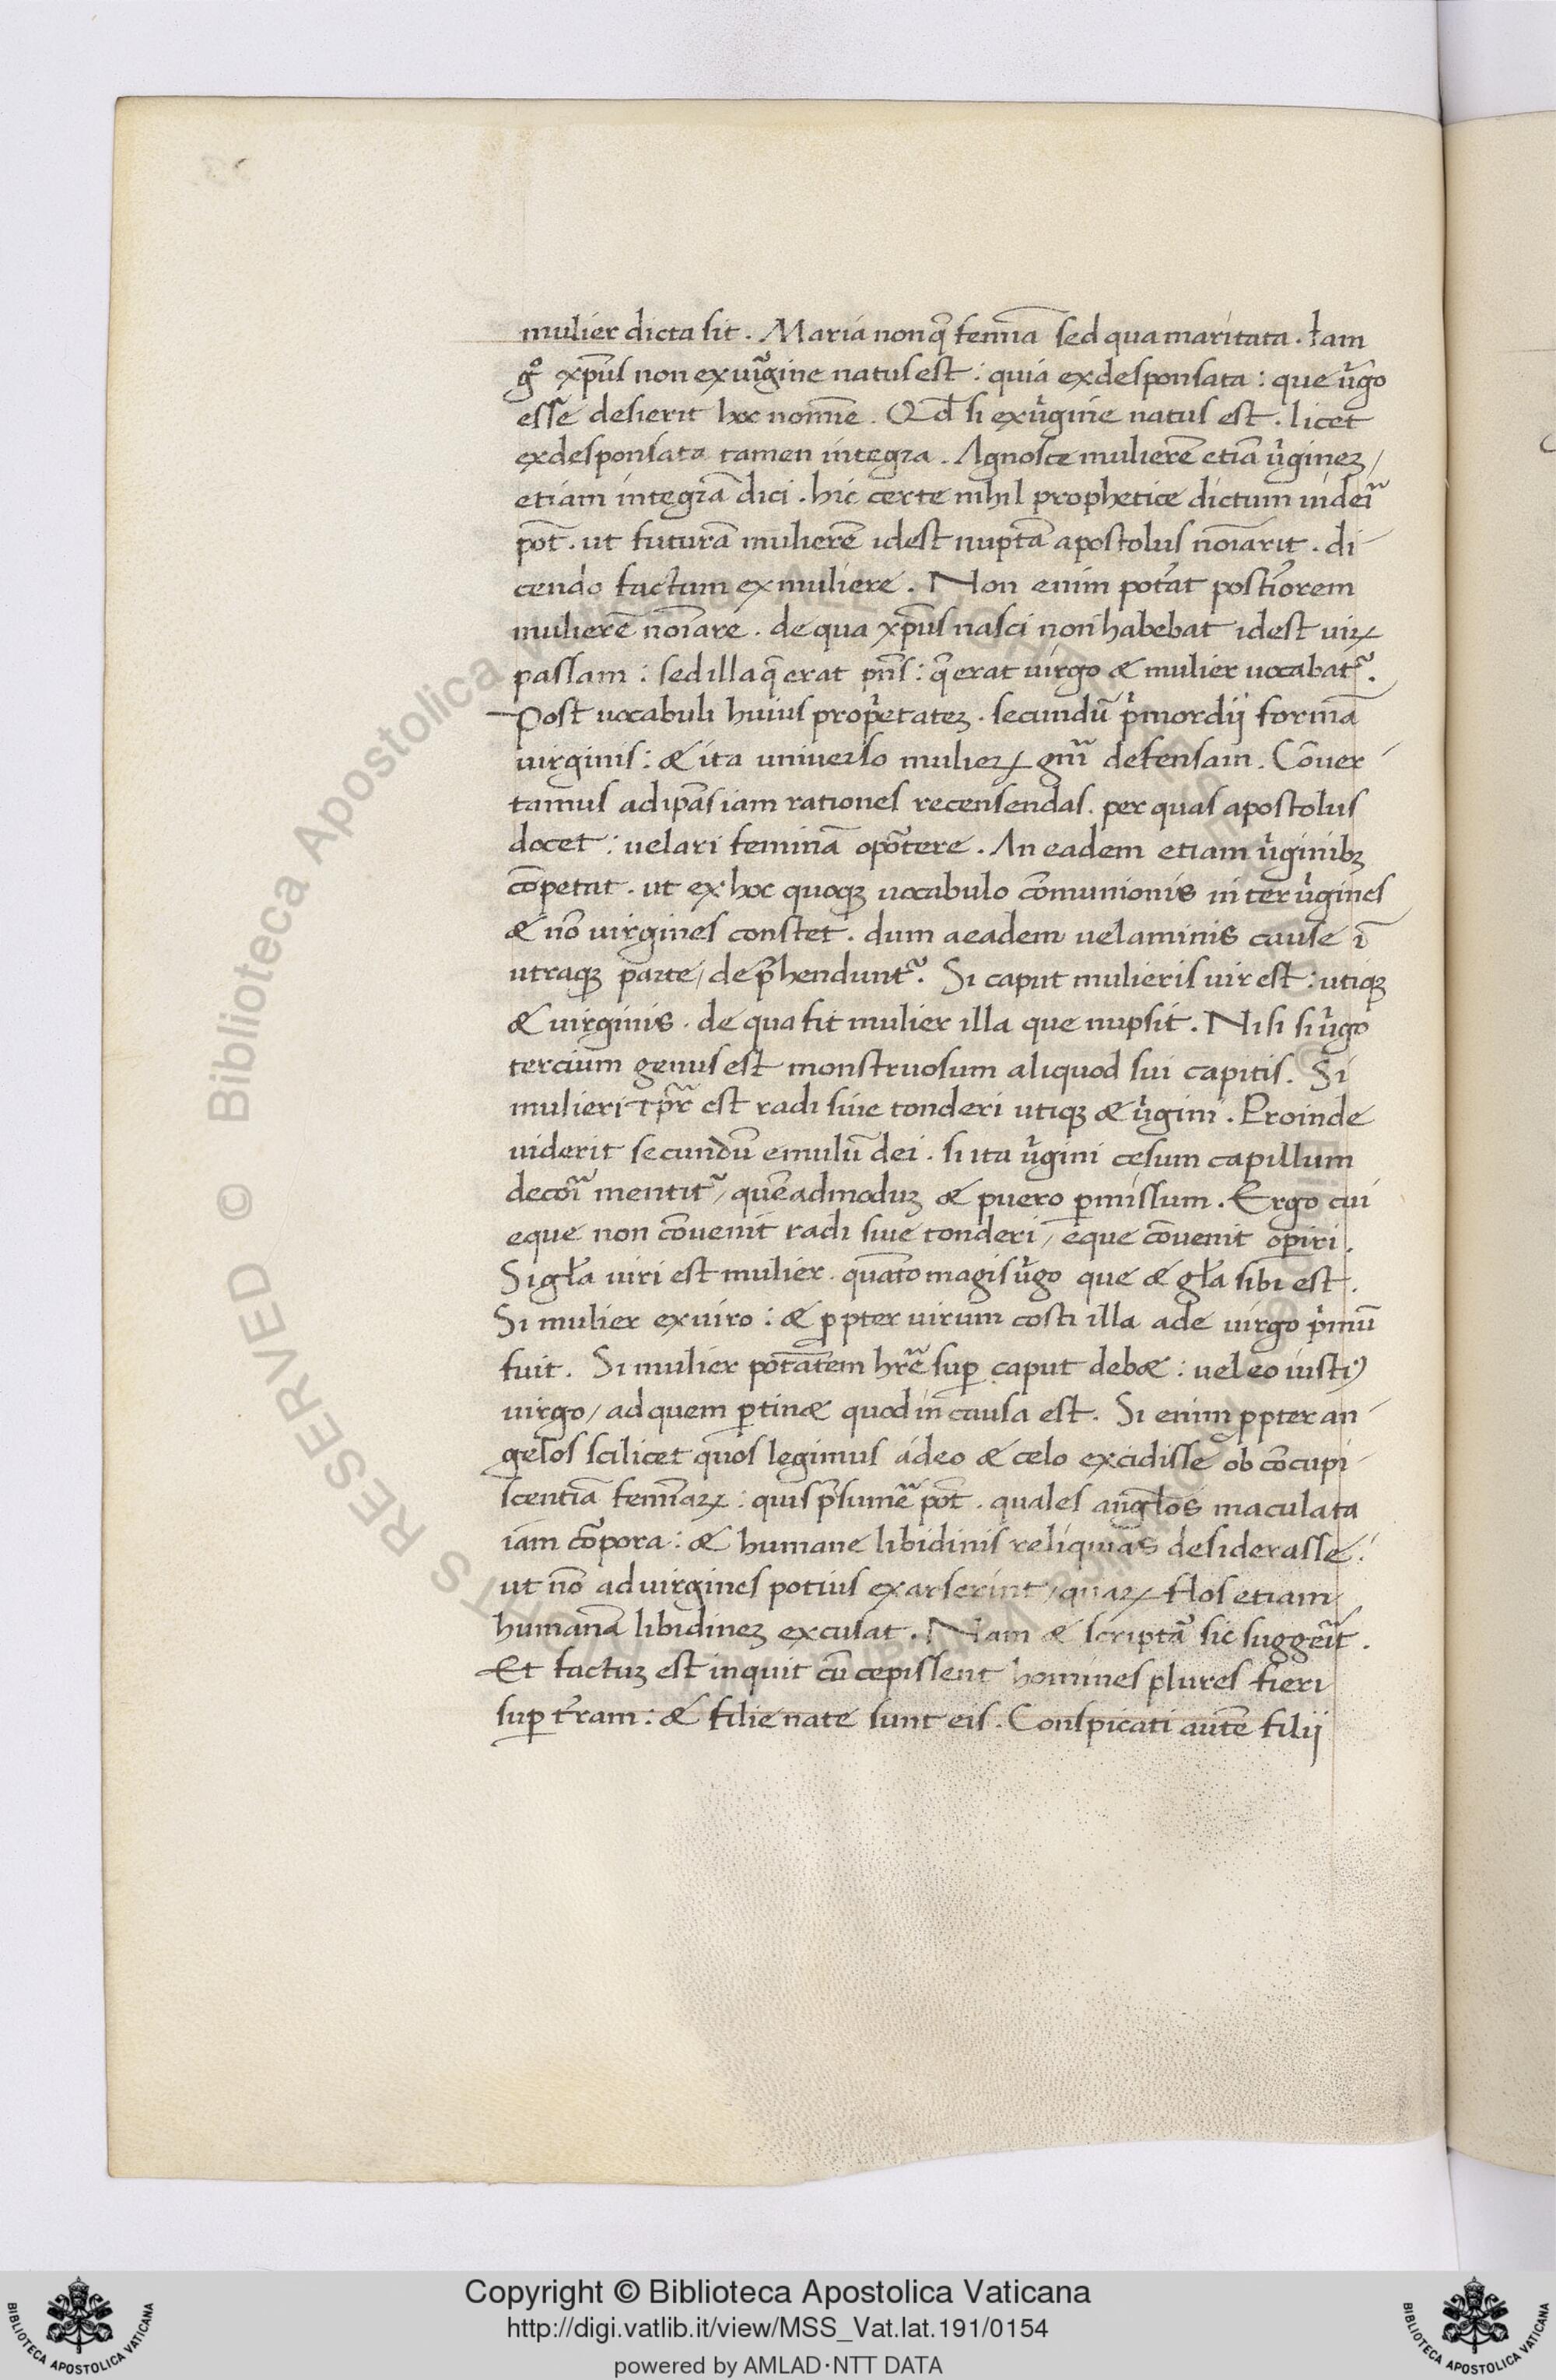 mulier dicta sit . Maria non q̄ femīa sed qua maritata . Iam
gͦ xp̄us non ex uir̃gine natus est : quia ex desponsata : que ũgo
esse desierit hoc nomīe . Qđ si ex ũgine natus est . licet
ex desponsata tamen integra . Agnosce mulierē etiā ũgineꝫ /
etiam integrā dici . hic certe nihil prophetice dictum uideri᷑
pōt . ut futurā mulierē idest nuptā apostolus noīarit . di-
cendo factum ex muliere . Non enim potãt postĩorem
mulierē noīare . de qua xp̄us nasci non habebat idest uiꝝ
passam : sed illa q̄ erat pn̄s : q̄ erat virgo & mulier uocabat᷑ .
Post uocabuli huius prop̃etateꝫ . secundū p̃mordij formā
virginis : & ita universo mulieꝝ gn̄i defensam . Cōver-
tamus ad ip̄as iam rationes recensendas . per quas apostolus
docet : uelari feminā opōtere . An eadem etiam ũginibꝫ
cōpetat . ut ex hoc quoqꝫ uocabulo cōmunionis inter ũgines
& nō virgines constet . dum aeadem velaminis cause ī
utraqꝫ parte / dep̄hendunt᷑ . Si caput mulieris vir est : utiqꝫ
& virginis . de qua fit mulier illa que nupsit . Nisi si ũgo
tercium genus est monstruosum aliquod sui capitis . Si
mulieri tp̄r est radi siue tonderi utiqꝫ & ũgini . Proinde
viderit secundū emulū dei . si ita ũgini cesum capillum
decorī mentit᷑ / quēadmoduꝫ & puero ꝑmissum . Ergo cui
eque non cōvenit radi siue tonderi / eque cōvenit oꝑiri .
Si gl̄a viri est mulier . quāto magis ũgo que & gl̄a sibi est .
Si mulier ex viro : & ꝓpter virum costi illa ade virgo p̃mū
fuit . Si mulier potātem hr̄e suꝑ caput deb& : uel eo iustiꝯ
virgo / ad quem ꝑtin& quod in causa est . Si enim ꝓpter an-
gelos scilicet quos legimus a deo & celo excidisse ob cōcupi-
scentiā femīaꝝ : quis p̄sumē pōt . quales an̄glos maculata
iam cōpora : & humane libidinis reliquias desiderasse :
ut nō ad virgines potius exarserint / quaꝝ flos etiam
humanā libidineꝫ excusat . Nam & scriptã sic suggerīt .
Et factuꝫ est inquit cū cepissent homines plures fieri
suꝑ t̃ram : & filie nate sunt eis . Conspicati autē filij
Copyright © Biblioteca Apostolica Vaticana
http://digi.vatlib.it/view/MSS_Vat.lat.191/0154
powered by AMLAD·NTT DATA